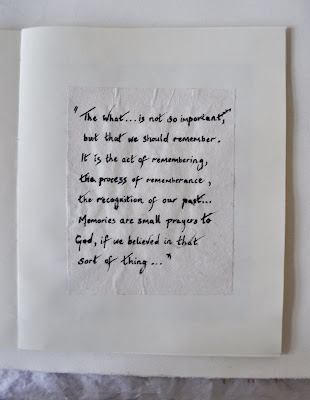 "The what...is not so important,
but that we should remember.
It is the act of remembering,
the process of rememberance,
the recognition of our past...
Memories are small prayers to
God, if we believed in that
sort of thing..."